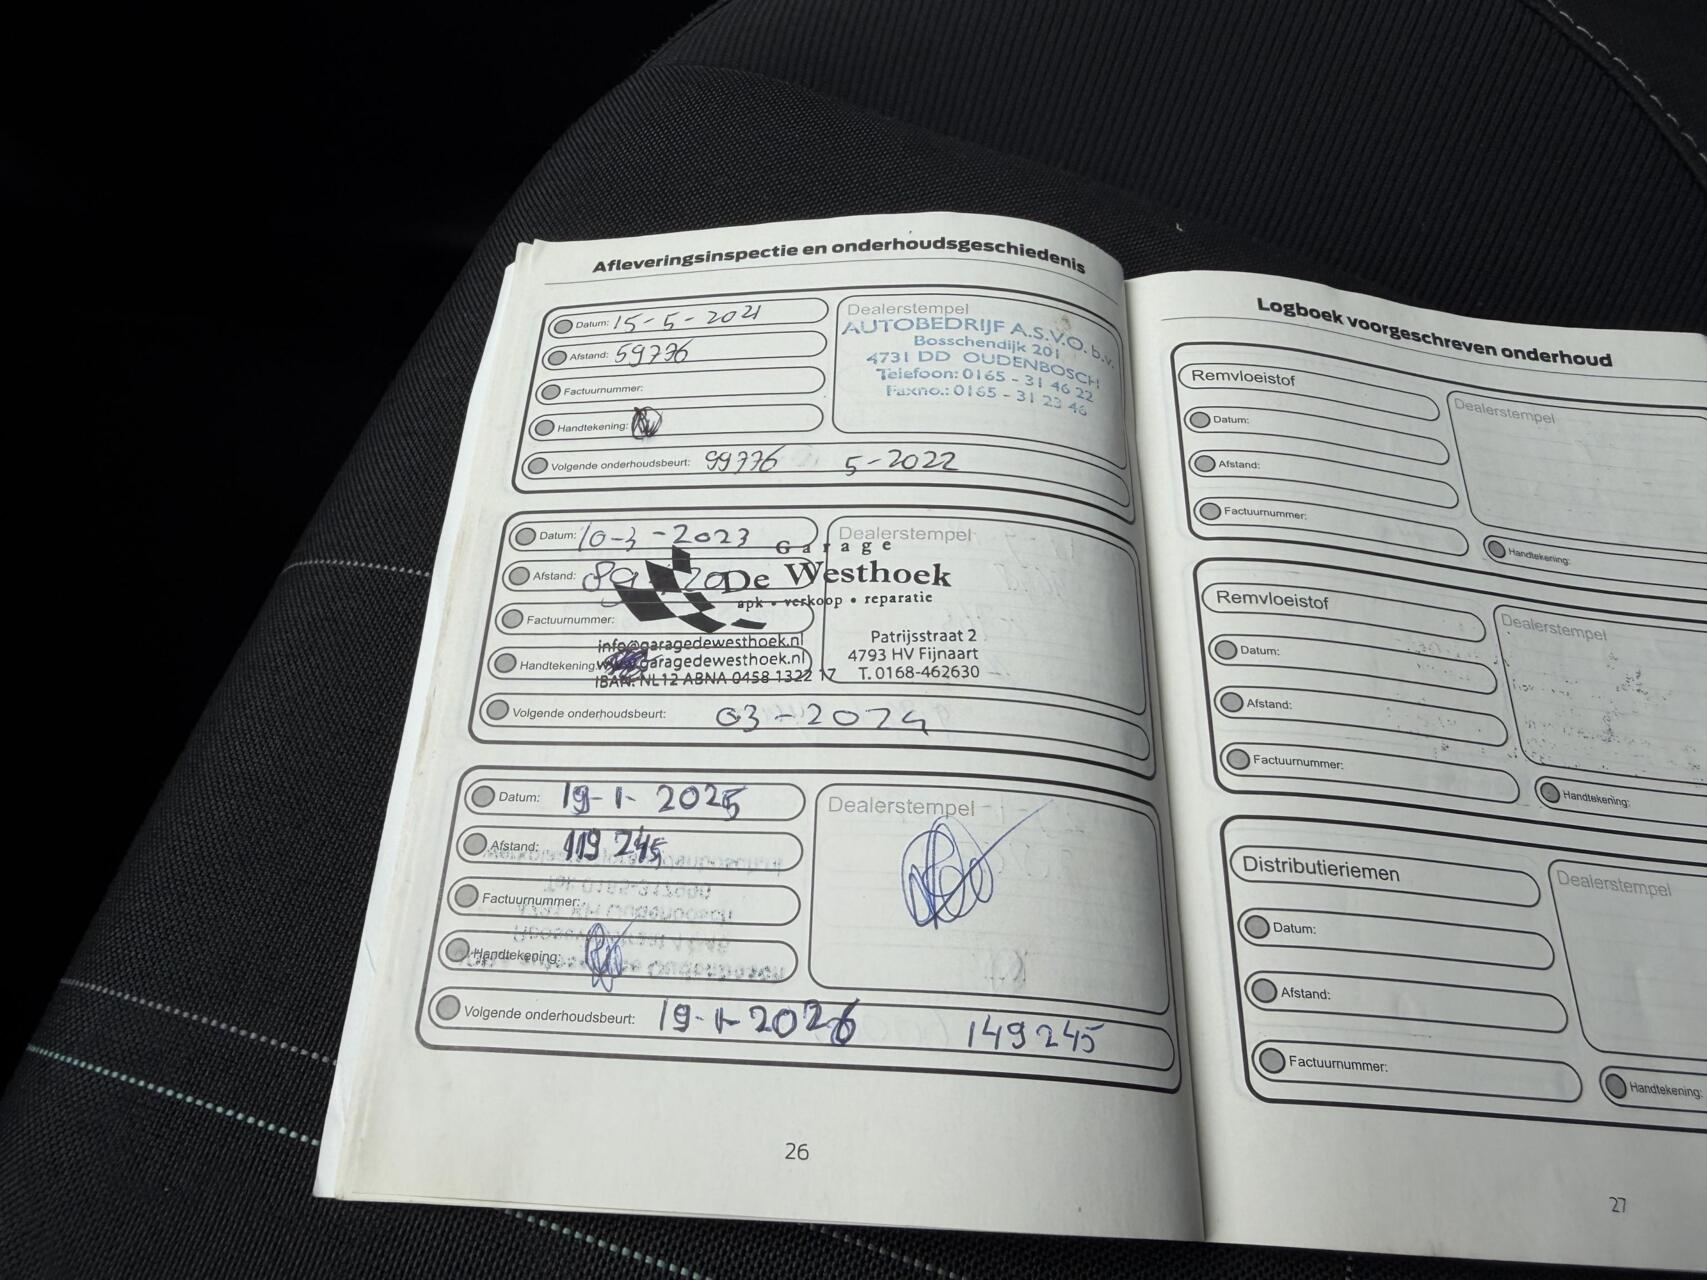 Afleveringsinspectie en onderhoudsgeschiedenis
Datum: 15-5-2021
Afstand: 59776
Factuurnummer:
Handtekening:
Volgende onderhoudsbeurt: 99776 5-2022
Dealerstempel
AUTOBEDRIJF A.S.V.O. b.v.
Bosschendijk 201
4731 DD OUDENBOSCH
Telefoon: 0165 - 31 46 22
Faxno.: 0165 - 31 23 46
Datum: 10-3-2023
Afstand:
Factuurnummer:
Handtekening:
Dealerstempel
Garage
De Westhoek
apk • verkoop • reparatie
info@garagedewesthoek.nl
www.garagedewesthoek.nl
IBAN: NL12 ABNA 0458 1322 17
Patrijsstraat 2
4793 HV Fijnaart
T. 0168-462630
Volgende onderhoudsbeurt: 03-2024
Datum: 19-1-2025
Afstand: 119 245
Factuurnummer:
Handtekening:
Dealerstempel
Volgende onderhoudsbeurt: 19-1-2026 149245
26
Logboek voorgeschreven onderhoud
Remvloeistof
Datum:
Afstand:
Factuurnummer:
Dealerstempel
Handtekening:
Remvloeistof
Datum:
Afstand:
Factuurnummer:
Dealerstempel
Handtekening:
Distributieriemen
Datum:
Afstand:
Factuurnummer:
Dealerstempel
Handtekening:
27